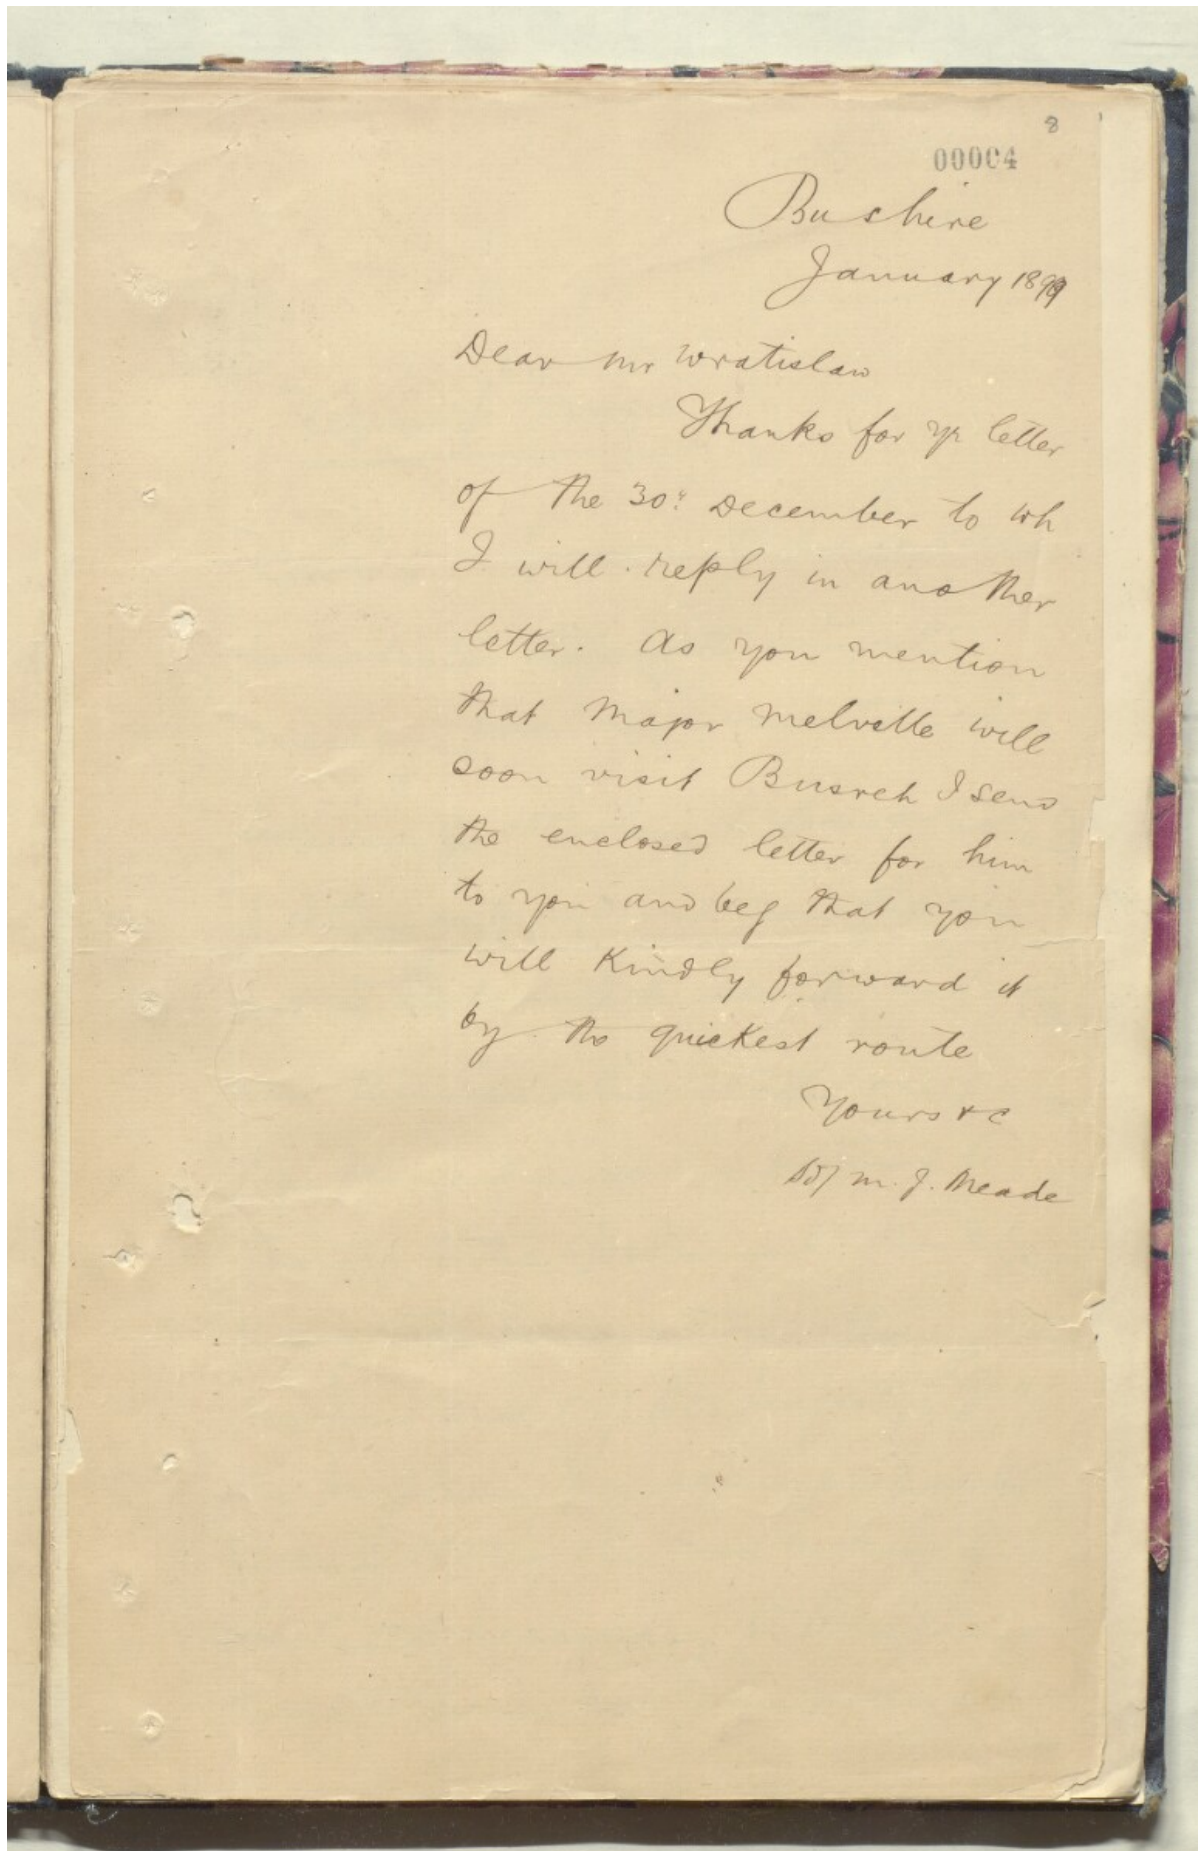 8
00004
Bushire
January 1899
Dear Mr Wratislaw
Thanks for yr letter
of the 30th December to wh
I will reply in another
letter. As you mention
that Major Melville will
soon visit Busreh I send
the enclosed letter for him
to you and beg that you
will kindly forward it
by the quickest route
Yours &c
Sd/ M. J. Meade